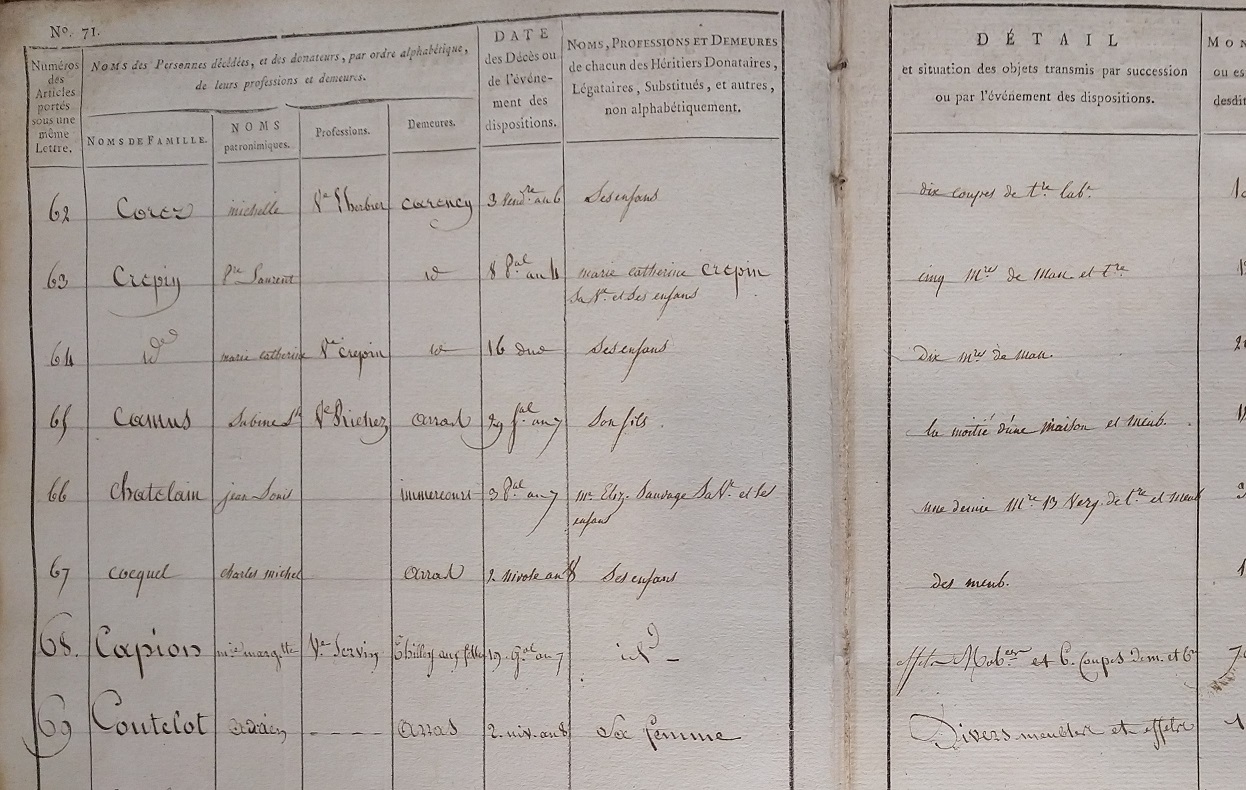 No. 71.
Numéros
des
Articles
portés
sous une
même
Lettre.
NOMS des Personnes décédées, et des donateurs, par ordre alphabétique,
de leurs professions et demeures.
NOMS DE FAMILLE.
NOMS
patronimiques.
Professions.
Demeures.
DATE
des Décès ou
de l'événe-
ment des
dispositions.
NOMS, PROFESSIONS ET DEMEURES
de chacun des Héritiers Donataires,
Légataires, Substitués, et autres,
non alphabétiquement.
DÉTAIL
et situation des objets transmis par succession
ou par l'événement des dispositions.
MON
ou es
desdit
62 Corez michelle Ve Lherbier carency 3 vendre an 6 Ses enfans dix coupes de tre labe
63 Crepin Pre Laurent id 8 Pal an 4 marie catherine Crepin cinq mres de man. et tre
Sa Ve et Ses enfans
64 id marie catherine Ve crepin id 16 dud Ses enfans Dix mres de man.
65 Camus Sabine Ve Richez arras 29 fal an 7 Son fils. la moitié d'une maison et meub.
66 Chatelain jean Louis immercourt 3 Pal an 7 me Eliz. Sauvage Sa Ve et Ses une demie mre 13 verg. de tre et meub
enfans
67 cocquel charles michel arras 2 nivose an 8 Ses enfans des meub.
68. Capion mie margtte Ve Servin 19 gal an 7 id effets Mobers et 6. Coupes
69 Coutelot adrien arras 2. niv. an 8 Sa femme Divers meubles et effets